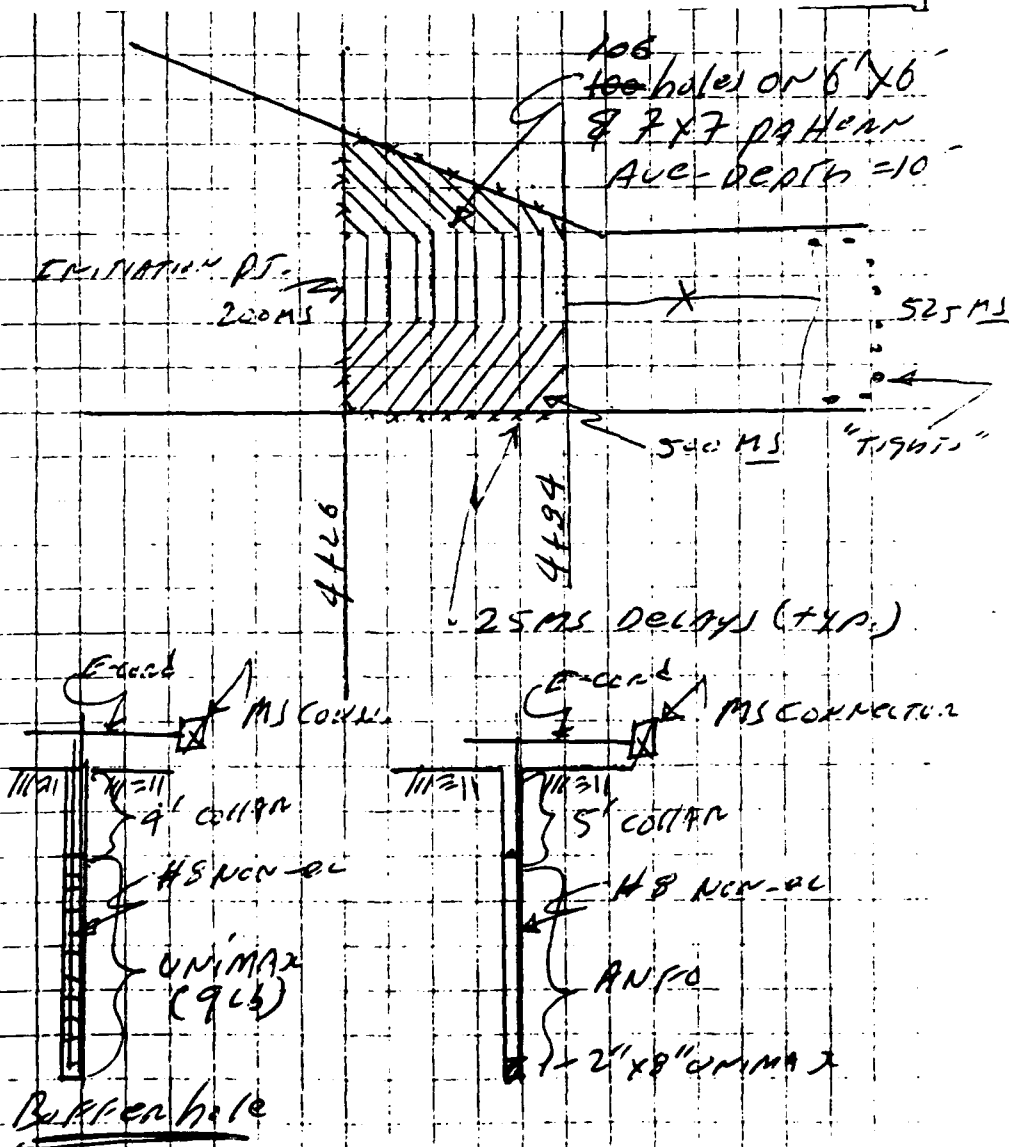 106
100 holes ON 6'X6'
& 7X7 pattern
Ave-Depth = 10'
INITIATION PT.
200MS
525 MS
500 MS
"Tights"
4+26
4+84
25MS Delays (typ.)
E-cord
MS CONN.
4' collar
#8 Non-el
UNIMAX
(9 Lb)
Buffer hole
E-cord
MS CONNECTOR
5' collar
#8 Non-el
ANFO
2"X8" UNIMAX